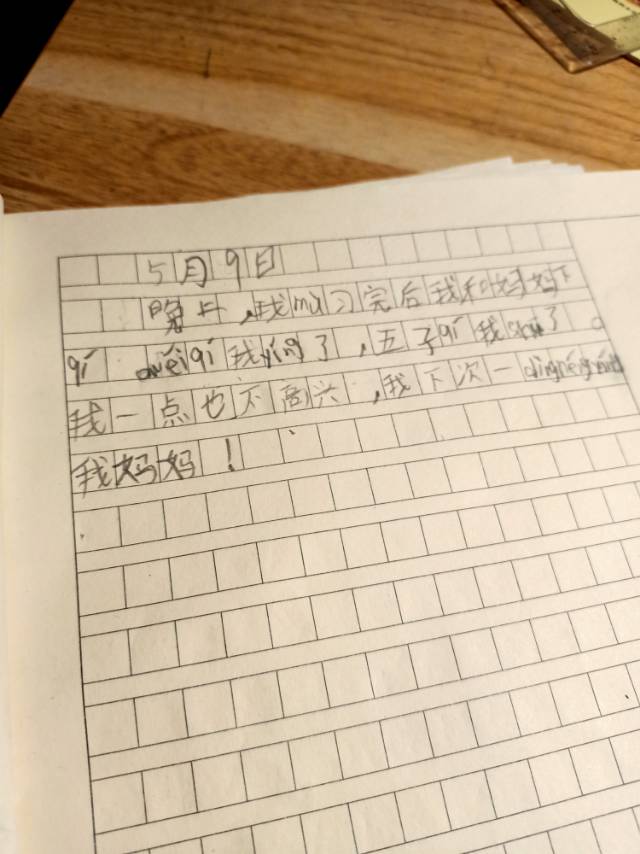 5月9日
晚上,我 习完后我和妈妈下
qí wéiqí我yíng了,五子qí我shū了。
我一点也不高兴,我下次一dìngnéngyíng
我妈妈!